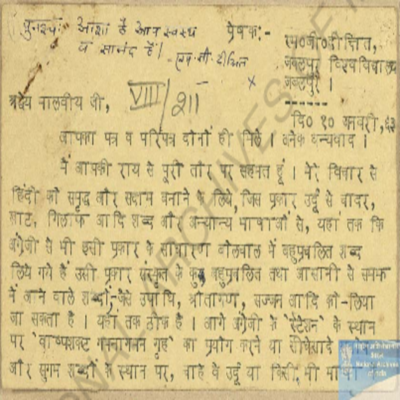 पुनश्च: आशा है आप स्वस्थ
व सानंद हैं।
प्रेषक:-
एम०बी०दीक्षित,
जबलपुर विश्वविद्यालय
जबलपुर।
VIII/211
दि० १० जनवरी, ६३
श्रद्धेय मालवीय जी,
आपका पत्र व परिपत्र दोनों ही मिले। अनेक धन्यवाद।
मैं आपकी राय से पूरी तौर पर सहमत हूं। मेरे विचार से
हिंदी को समृद्ध और सक्षम बनाने के लिये, जिस प्रकार उर्दू से चादर,
खाट, गिलाफ आदि शब्द और अन्यान्य भाषाओं से, यहां तक कि
अंग्रेजी से भी इसी प्रकार के साधारण बोलचाल में बहुप्रचलित शब्द
लिये गये हैं उसी प्रकार संस्कृत के कुछ बहुप्रचलित तथा आसानी से समझ
में आने वाले शब्दों-जैसे उपाधि, श्रोतागण, सज्जन आदि को-लिया
जा सकता है। यहां तक ठीक है। आगे अंग्रेजी के 'स्टेशन' के स्थान
पर 'वाष्पशकट गमनागमन गृह' का प्रयोग करने या सीधेसादे
और सुगम शब्दों के स्थान पर, चाहे वे उर्दू या किसी भी भाषा